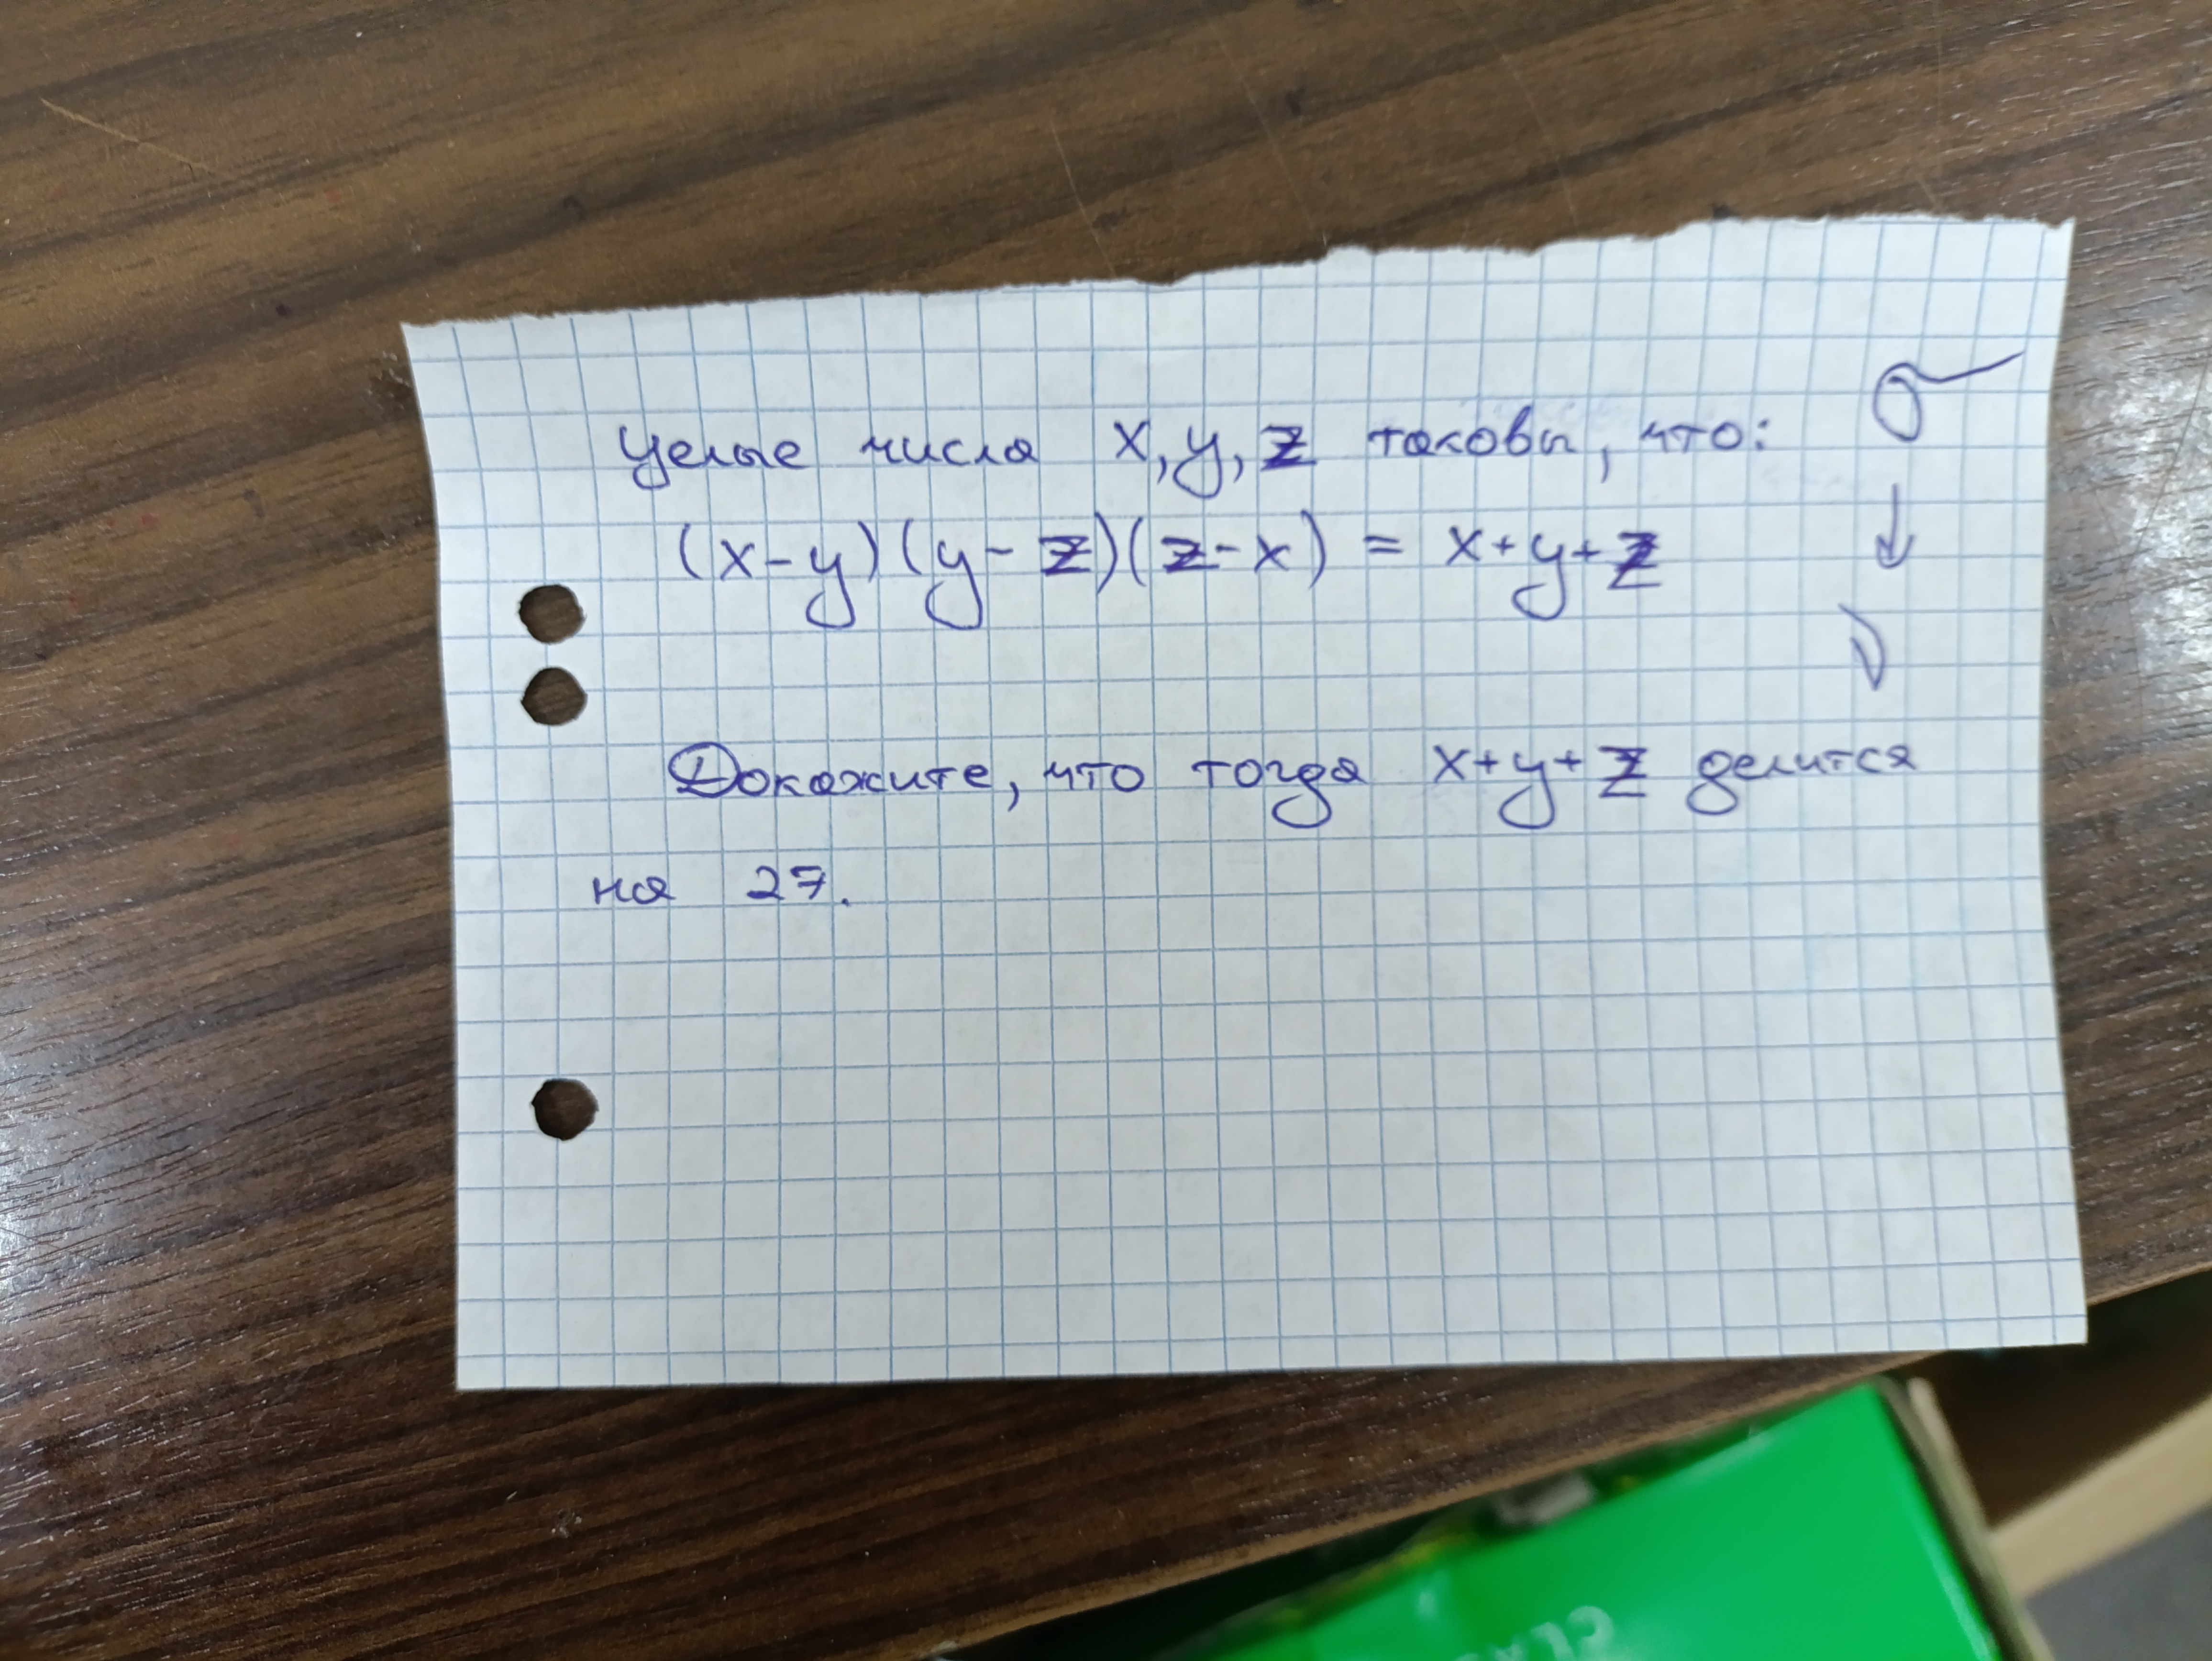 Целые числа x, y, z таковы, что:
(x-y)(y-z)(z-x) = x+y+z
Докажите, что тогда x+y+z делится
на 27.